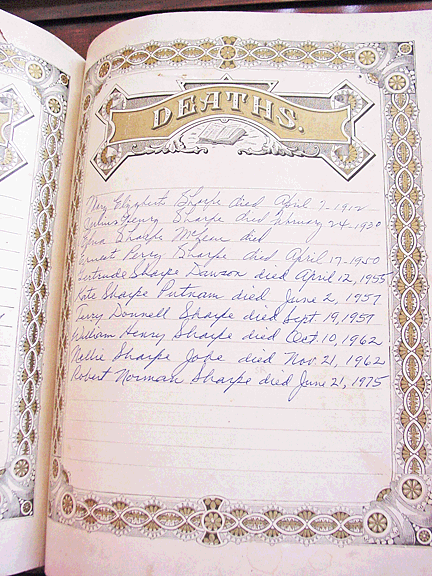 DEATHS.
Mary Elizabeth Sharpe died April 7-1912
Julius Henry Sharpe died February 24-1930
Sharpe McLean died
Ernest Perry Sharpe died April 17-1950
Gertrude Sharpe Dawson died April 12, 1955
Kate Sharpe Putnam died June 2, 1957
Perry Donnell Sharpe died Sept. 19, 1959
William Henry Sharpe died Oct. 10, 1962
Nallie Sharpe Jobe died Nov. 21, 1962
Robert Norman Sharpe died June 21, 1975